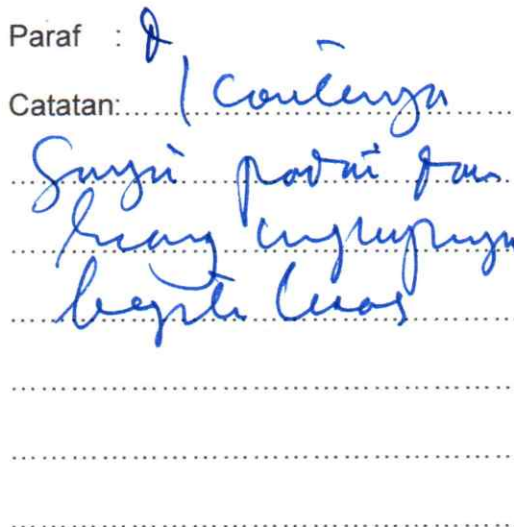 Paraf :
Catatan: Contennya
Sangat padat dan
ruang lingkupnya
begitu luas